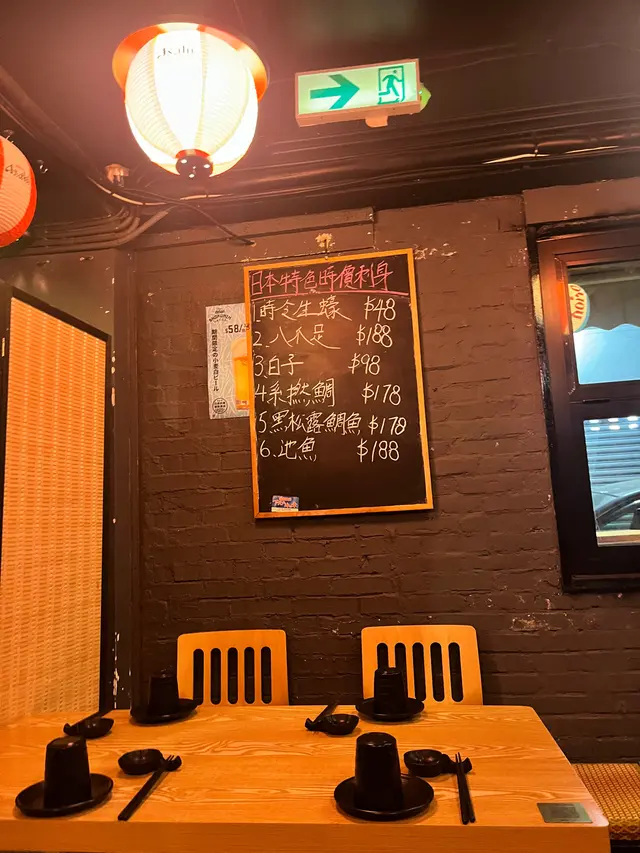 Asahi
日本特色時價刺身
1.時令生蠔 $48
2.八爪足 $188
3.白子 $98
4.糸撚鯛 $178
5.黑松露鯛魚 $178
6.池魚 $188
$58/
期間限定の小麦白ビール